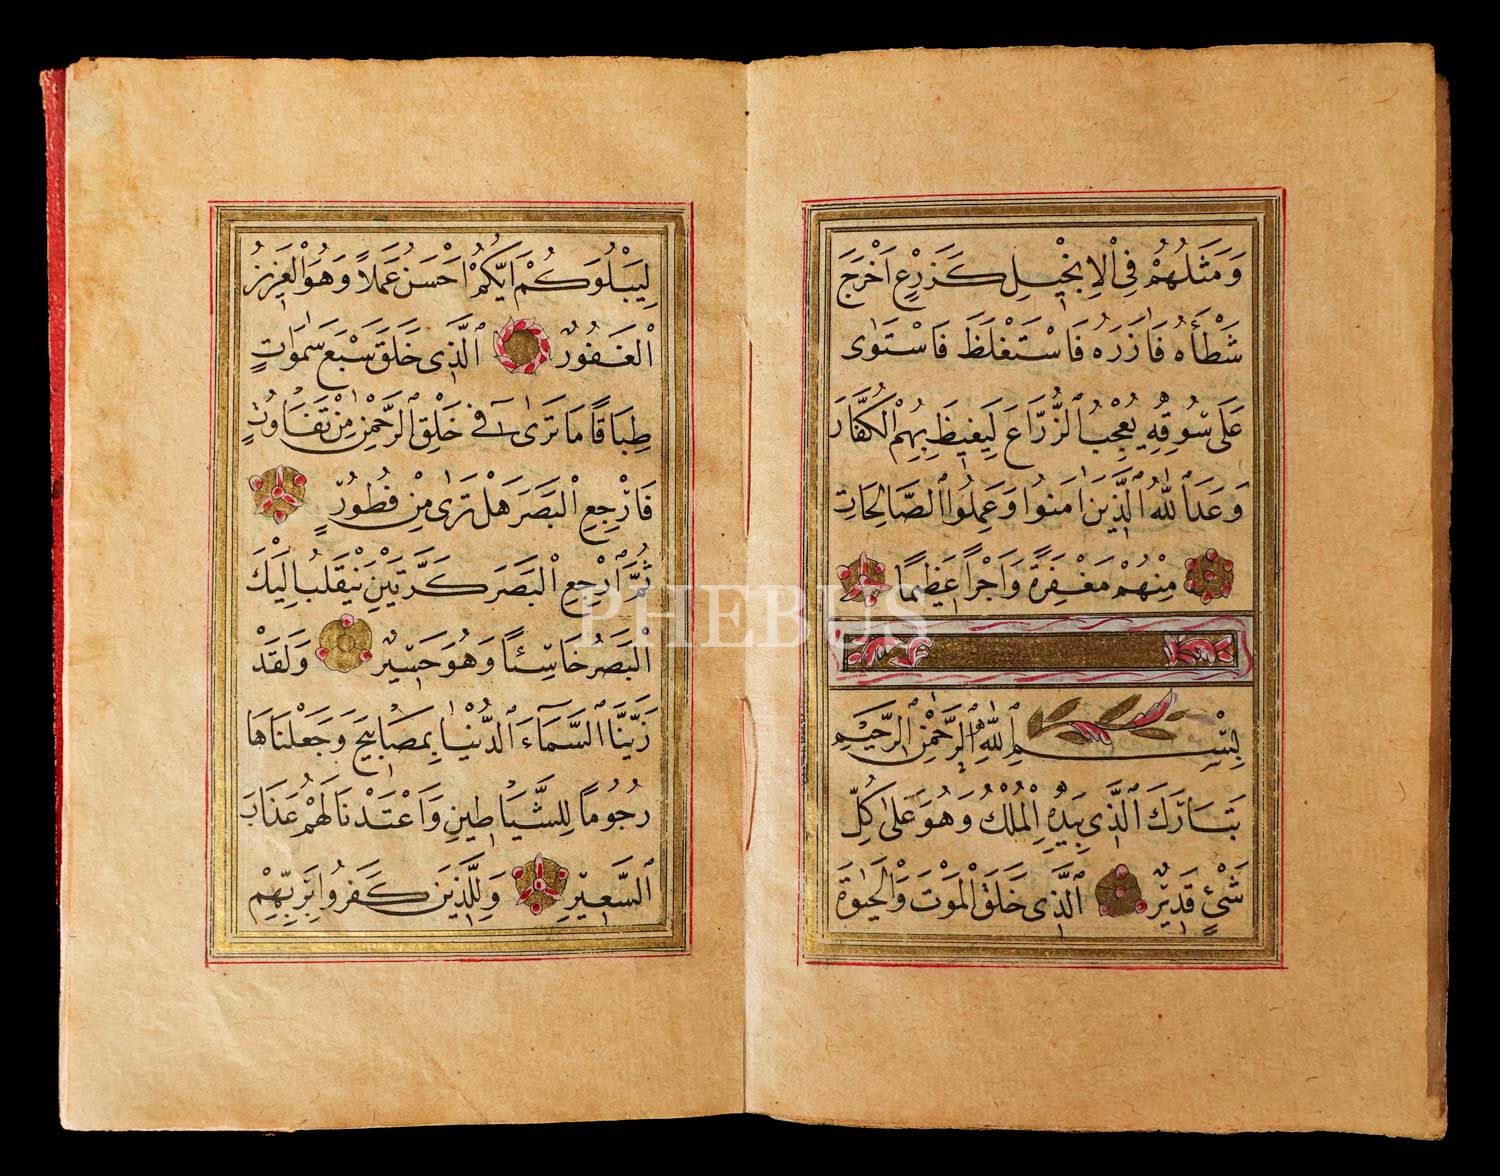 وَمَثَلُهُمْ فِي الْاِنْجٖيلِ كَزَرْعٍ اَخْرَجَ
شَطْأَهُ فَاٰزَرَهُ فَاسْتَغْلَظَ فَاسْتَوٰى
عَلٰى سُوقِهٖ يُعْجِبُ الزُّرَّاعَ لِيَغٖيظَ بِهِمُ الْكُفَّارَ
وَعَدَ اللّٰهُ الَّذٖينَ اٰمَنُوا وَعَمِلُوا الصَّالِحَاتِ
مِنْهُمْ مَغْفِرَةً وَاَجْرًا عَظٖيمًا
بِسْمِ اللّٰهِ الرَّحْمٰنِ الرَّحٖيمِ
تَبَارَكَ الَّذٖى بِيَدِهِ الْمُلْكُ وَهُوَ عَلٰى كُلِّ
شَىْءٍ قَدٖيرٌ الَّذٖى خَلَقَ الْمَوْتَ وَالْحَيٰوةَ
لِيَبْلُوَكُمْ اَيُّكُمْ اَحْسَنُ عَمَلًا وَهُوَ الْعَزٖيزُ
الْغَفُورُ الَّذٖى خَلَقَ سَبْعَ سَمٰوَاتٍ
طِبَاقًا مَا تَرٰى فٖى خَلْقِ الرَّحْمٰنِ مِنْ تَفَاوُتٍ
فَارْجِعِ الْبَصَرَ هَلْ تَرٰى مِنْ فُطُورٍ
ثُمَّ ارْجِعِ الْبَصَرَ كَرَّتَيْنِ يَنْقَلِبْ اِلَيْكَ
الْبَصَرُ خَاسِئًا وَهُوَ حَسٖيرٌ وَلَقَدْ
زَيَّنَّا السَّمَٓاءَ الدُّنْيَا بِمَصَابٖيحَ وَجَعَلْنَاهَا
رُجُومًا لِلشَّيَاطٖينِ وَاَعْتَدْنَا لَهُمْ عَذَابَ
السَّعٖيرِ وَلِلَّذٖينَ كَفَرُوا بِرَبِّهِمْ
PHEBUS